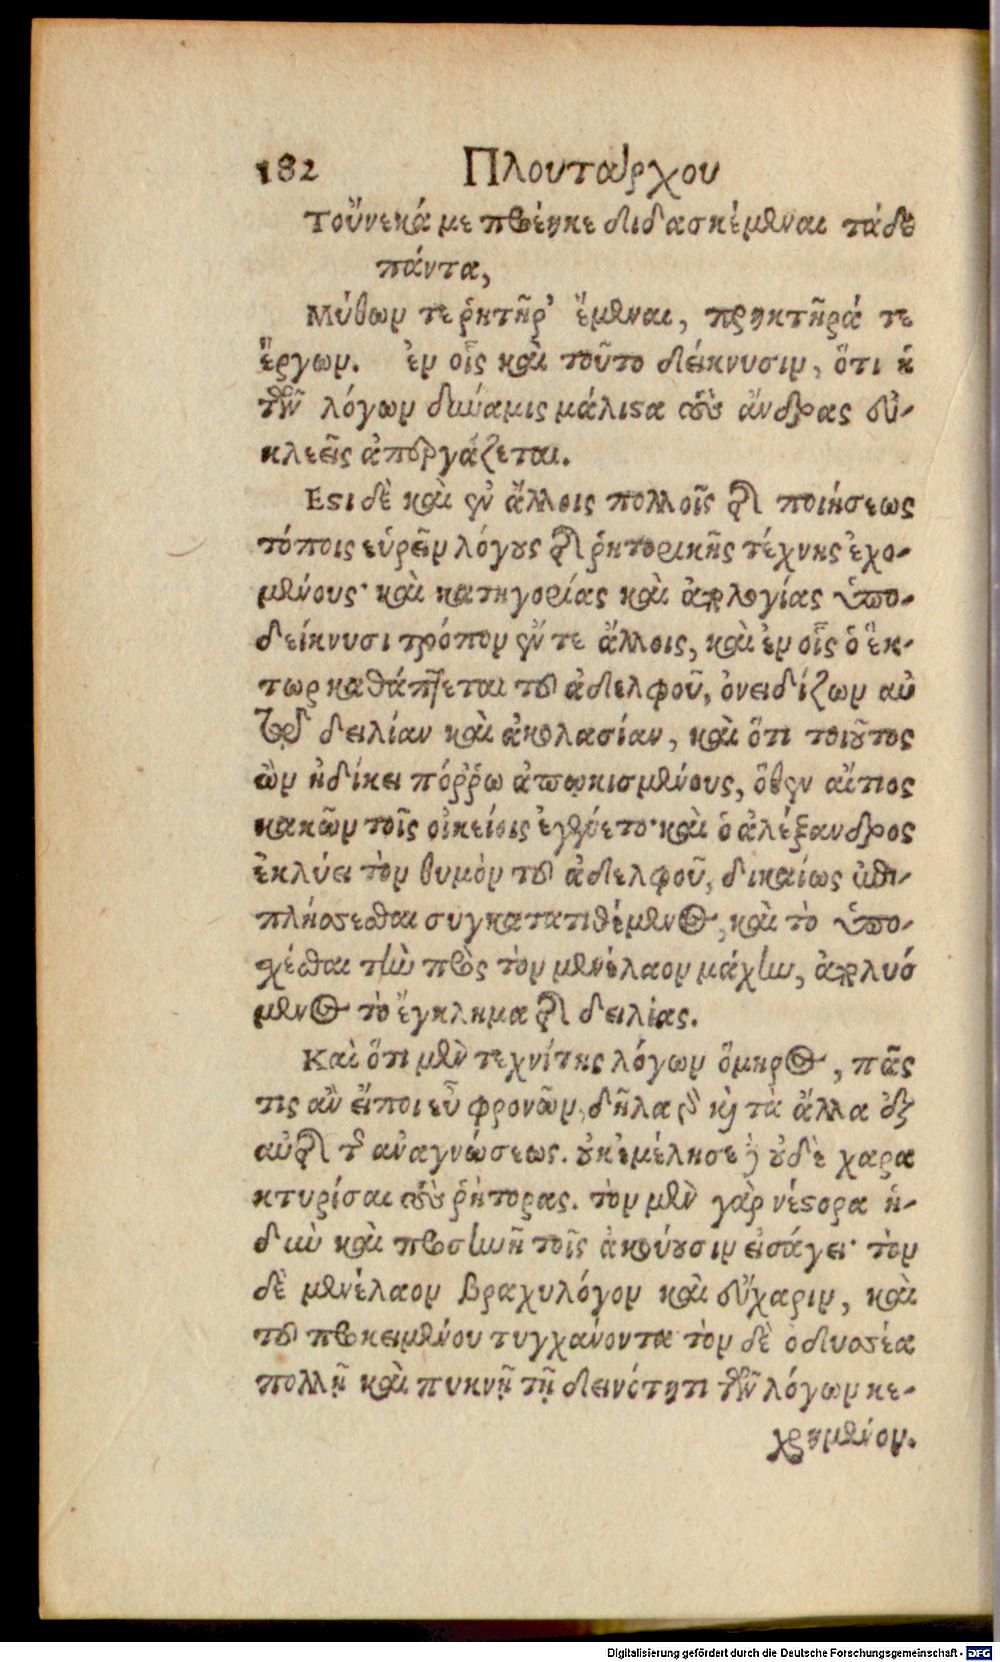 182 Πλουτάρχου
Τοὔνεκά με προέηκε διδασκέμεναι τάδε
πάντα,
Μύθων τε ῥητῆρ' ἔμεναι, πρηκτῆρά τε
ἔργων. ἐν οἷς καὶ τοῦτο δείκνυσιν, ὅτι ἡ
τῶν λόγων δύναμις μάλιστα τοὺς ἄνδρας εὐ-
κλεεῖς ἀπεργάζεται.
Εστι δὲ καὶ ἐν ἄλλοις πολλοῖς τῆς ποιήσεως
τόποις εὑρεῖν λόγους τῆς ῥητορικῆς τέχνης ἐχο-
μένους· καὶ κατηγορίας καὶ ἀπολογίας ὑπο-
δείκνυσι τρόπον ἔν τε ἄλλοις, καὶ ἐν οἷς ὁ ἕκ-
τωρ καθάπτεται τοῦ ἀδελφοῦ, ὀνειδίζων αὐ
τοῦ δειλίαν καὶ ἀκολασίαν, καὶ ὅτι τοιοῦτος
ὢν ἠδίκει πόῤῥω ἀπῳκισμένους, ὅθεν αἴτιος
κακῶν τοῖς οἰκείοις ἐγένετο· καὶ ὁ ἀλέξανδρος
ἐκλύει τὸν θυμὸν τοῦ ἀδελφοῦ, δικαίως ἐπι-
πλήσσεσθαι συγκατατιθέμενος, καὶ τὸ ὑπο-
χέσθαι τὴν πρὸς τὸν μενέλαον μάχην, ἀπολυό
μενος τὸ ἔγκλημα τῆς δειλίας.
Καὶ ὅτι μὲν τεχνίτης λόγων ὅμηρος, πᾶς
τις ἂν εἴποι εὖ φρονῶν, δῆλα δὲ καὶ τὰ ἄλλα ἐξ
αὐτῆς τῆς ἀναγνώσεως. οὐκ ἠμέλησε δὲ οὐδὲ χαρα
κτυρίσαι τοὺς ῥήτορας. τὸν μὲν γὰρ νέστορα ἡ-
δὺν καὶ προσηνῆ τοῖς ἀκούουσιν εἰσάγει· τὸν
δὲ μενέλαον βραχυλόγον καὶ εὔχαριν, καὶ
τοῦ προκειμένου τυγχάνοντα τὸν δὲ ὀδυσσέα
πολλῇ καὶ πυκνῇ τῇ δεινότητι τῶν λόγων κε-
χρημένον.
Digitalisierung gefördert durch die Deutsche Forschungsgemeinschaft - DFG